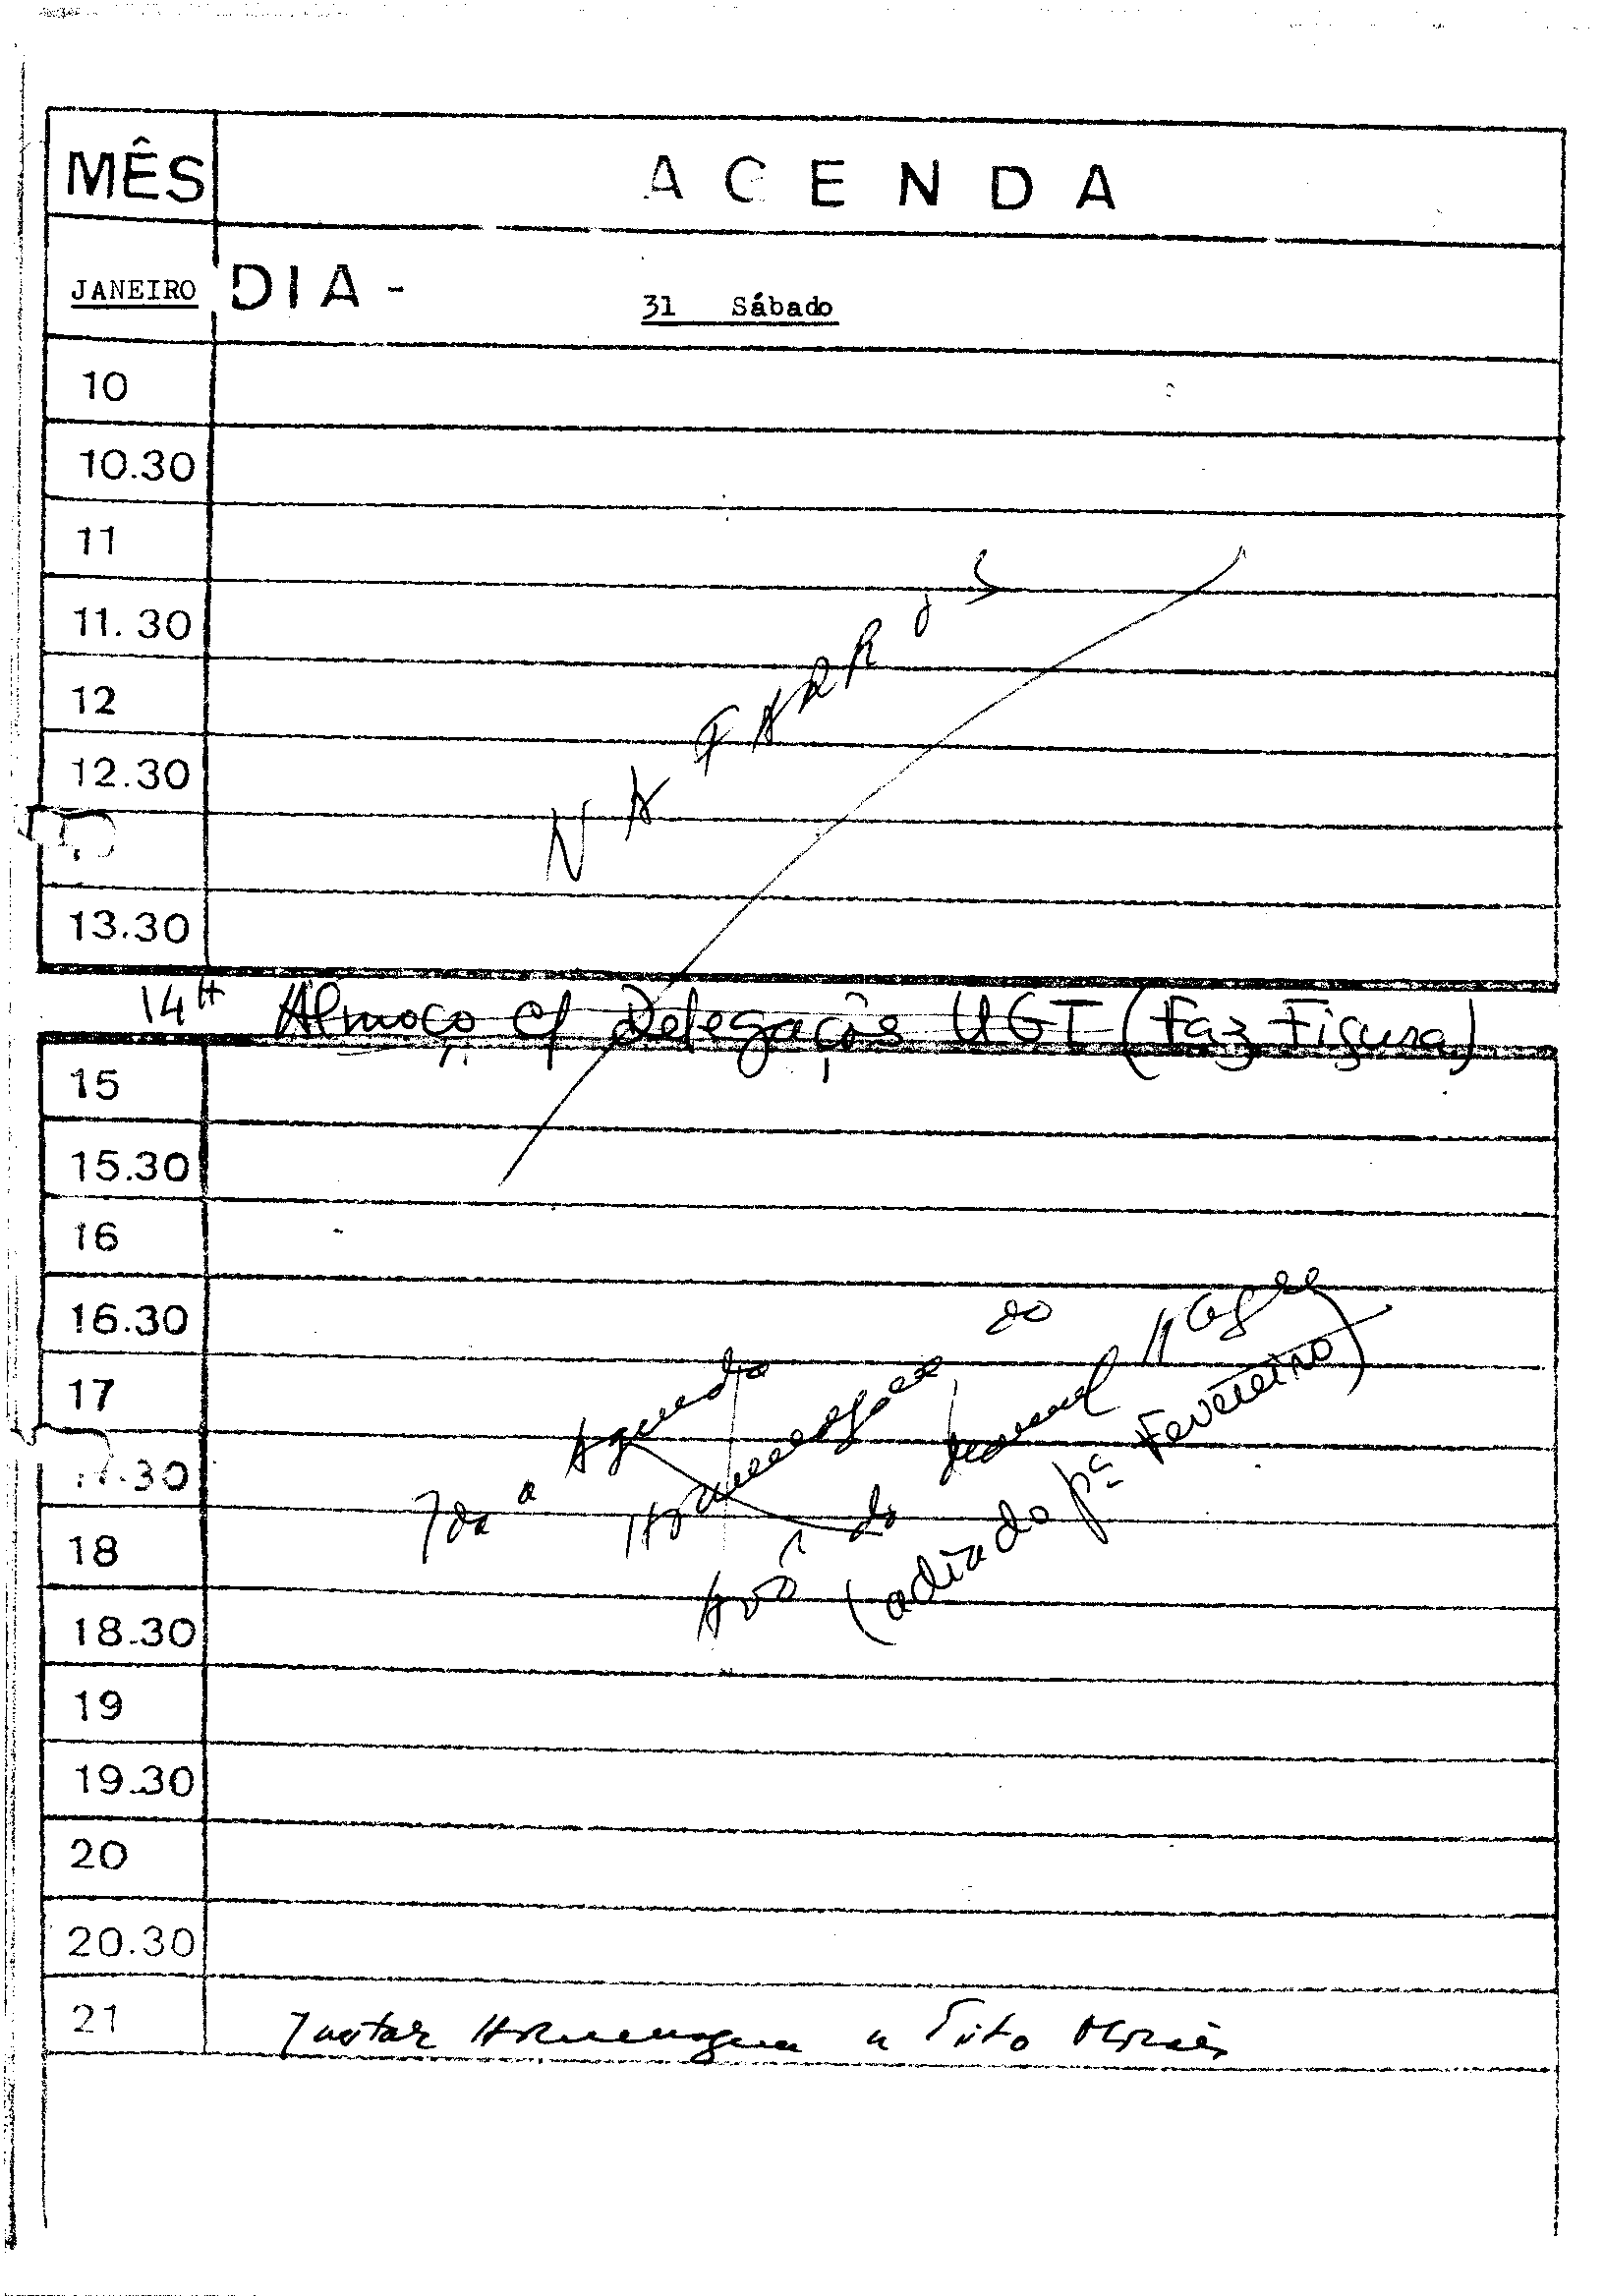 MÊS AGENDA
JANEIRO DIA - 31 Sábado
10
10.30
11
11.30
12
12.30
NAFARROS
13.30
14H Almoço c/ Delegação UGT (Faz Figura)
15
15.30
16
16.30
17
17.30
Ida a Agueda
Homenagem ao
Avô do Manuel Alegre
(adiado pª Fevereiro)
18
18.30
19
19.30
20
20.30
21 Jantar Homenagem a Tito Morais